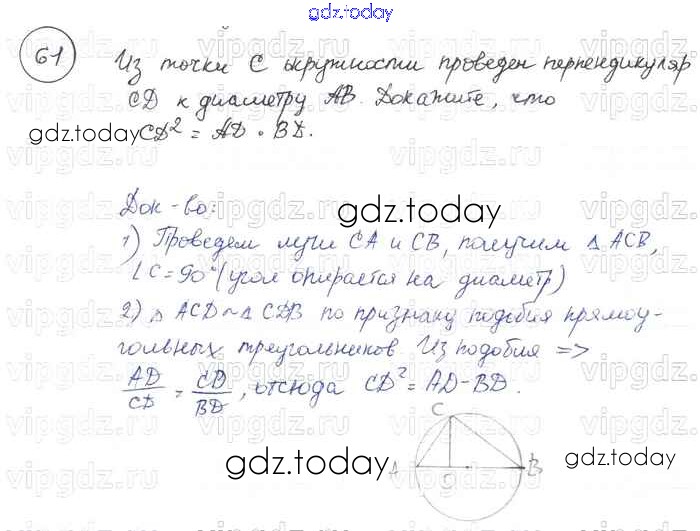 gdz.today
61 Из точки C окружности проведен перпендикуляр
CD к диаметру AB. Докажите, что
gdz.today CD² = AD · BD.
Док-во:
gdz.today
1) Проведем лучи CA и CB, получим △ ACB,
∠C = 90° (угол опирается на диаметр)
2) △ ACD ~ △ CDB по признаку подобия прямоу-
гольных треугольников Из подобия =>
AD/CD = CD/BD, отсюда CD² = AD·BD.
C
gdz.today A B gdz.today
vipgdz.ru